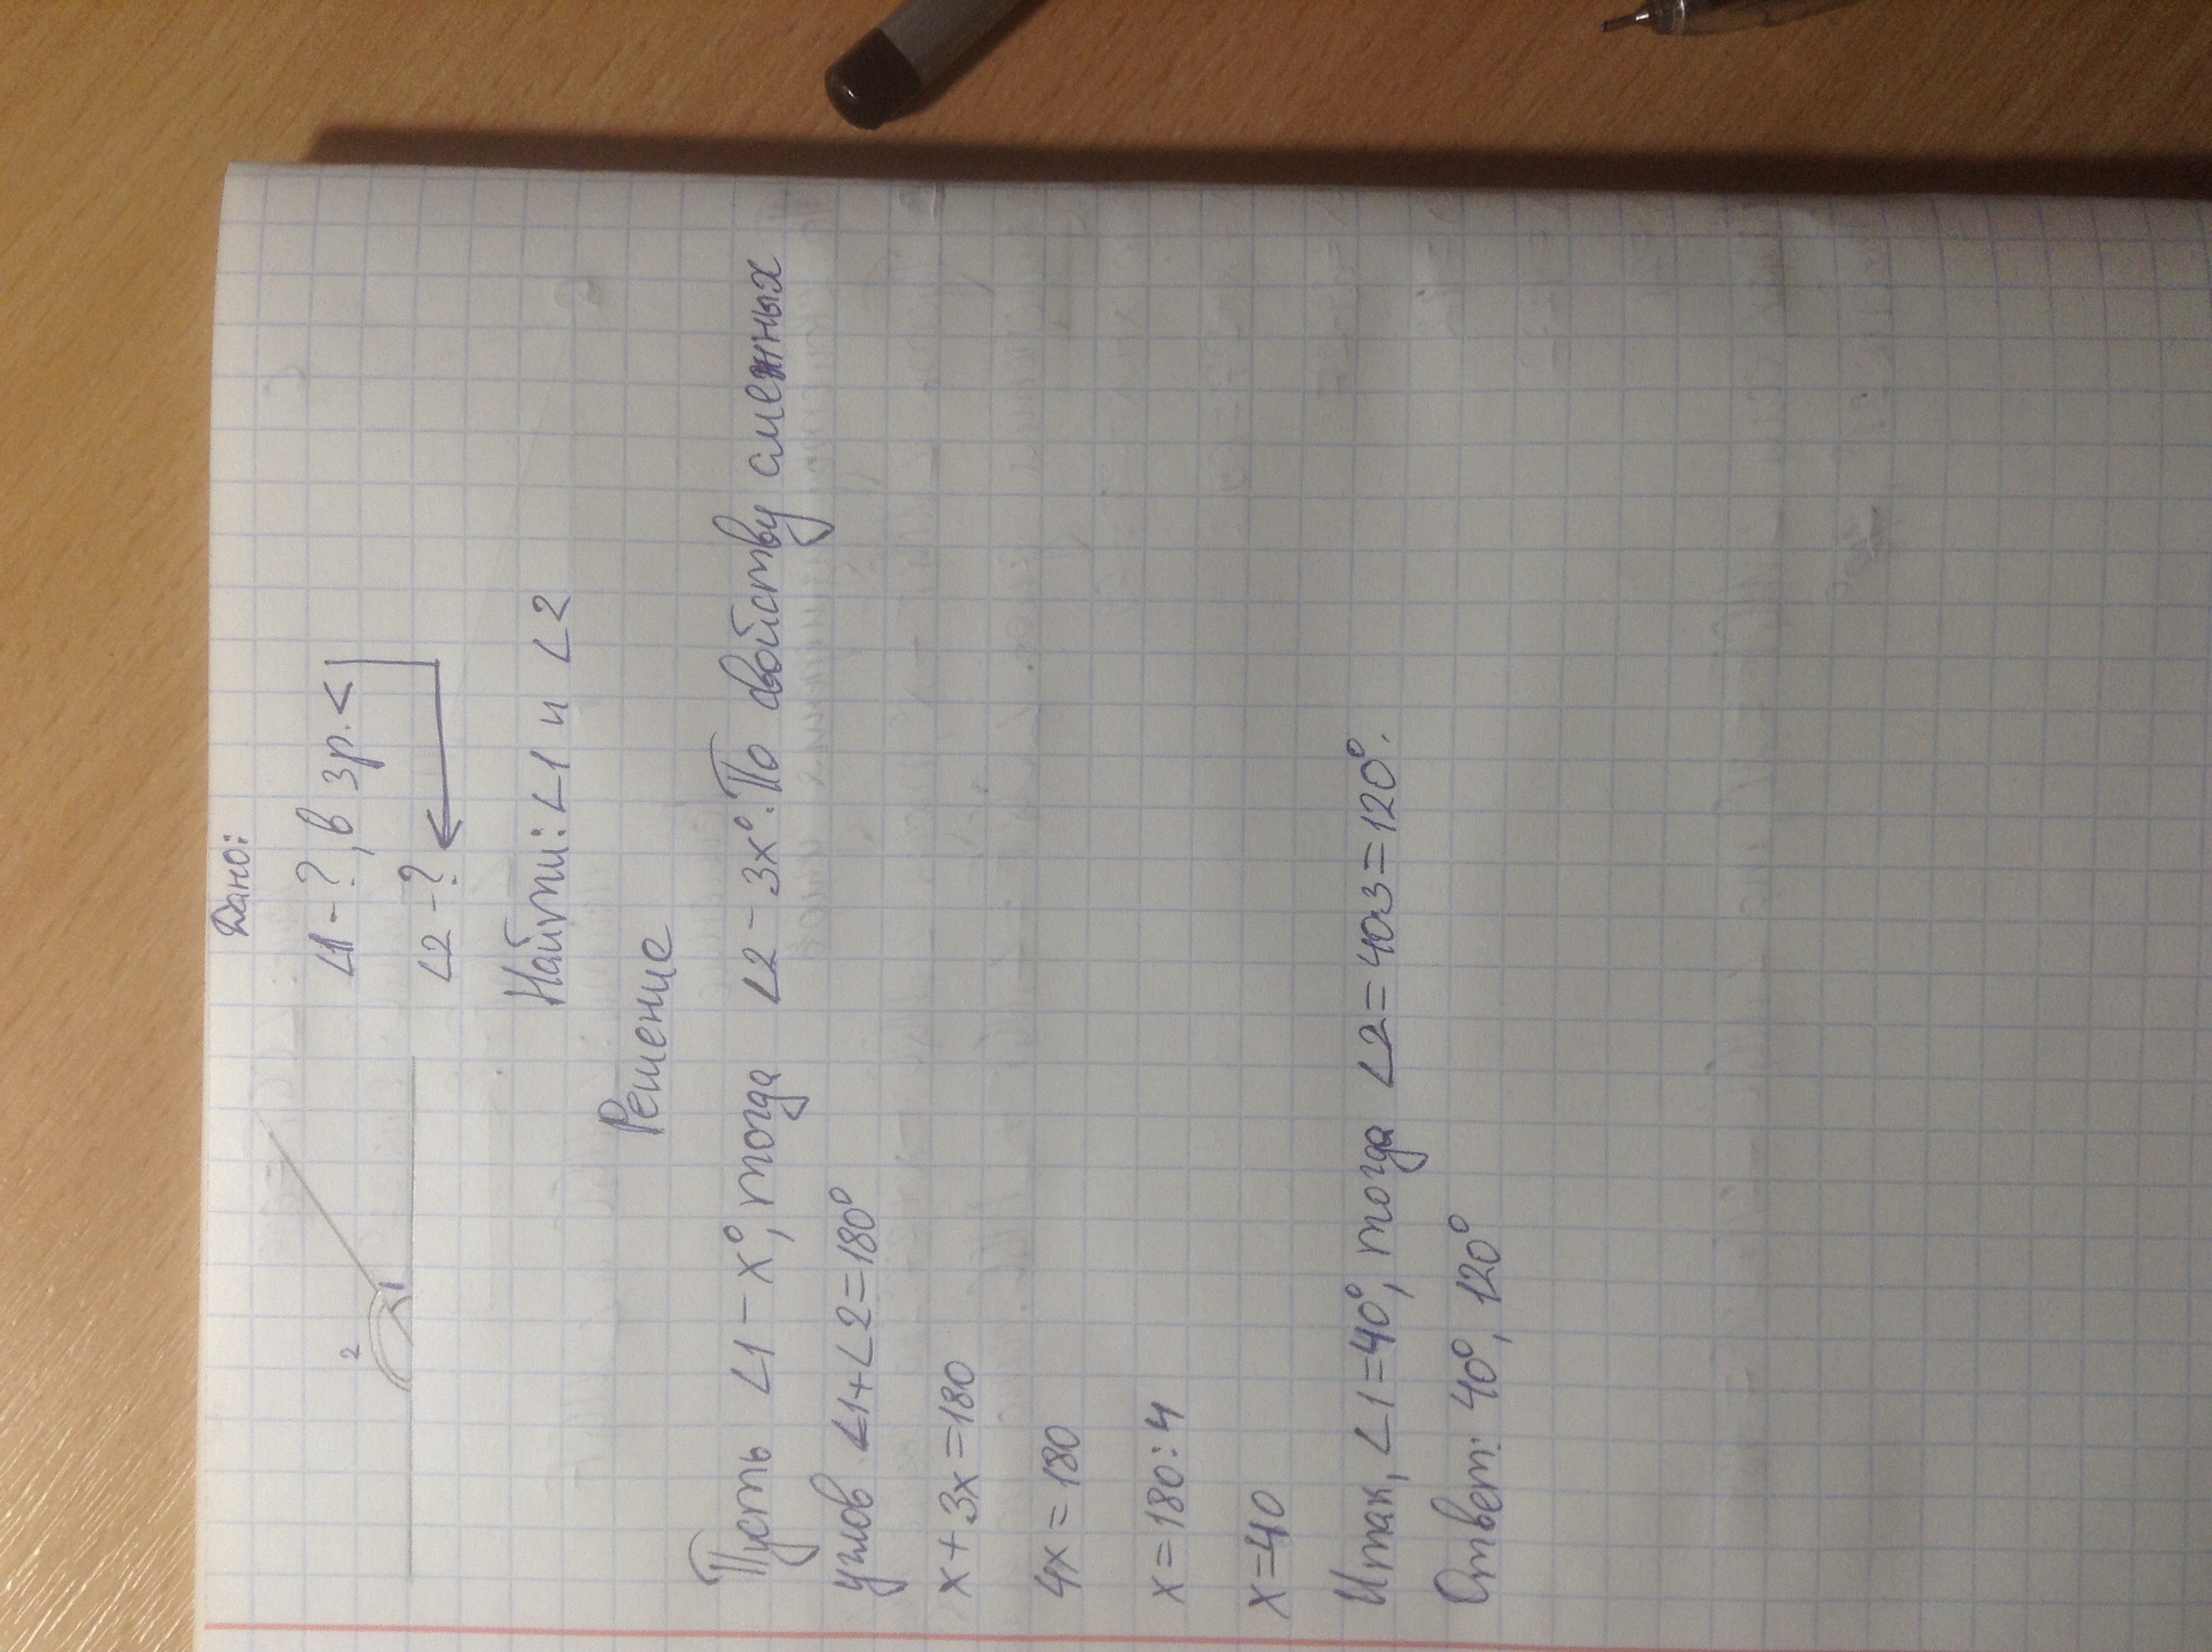 Дано:
∠1 - ?, в 3 р. <
∠2 - ?
2
1
Найти: ∠1 и ∠2
Решение
Пусть ∠1 - x°, тогда ∠2 - 3x°. По свойству смежных
углов ∠1+∠2=180°
x+3x=180
4x=180
x=180:4
x=40
Итак, ∠1=40°, тогда ∠2=40·3=120°.
Ответ: 40°, 120°